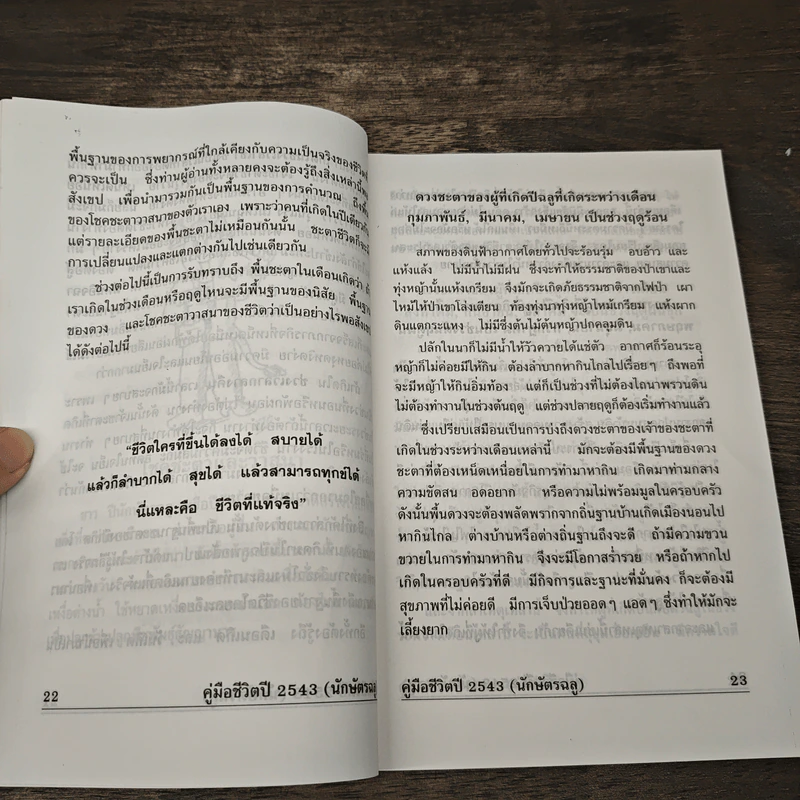 พื้นฐานของการพยากรณ์ที่ใกล้เคียงกับความเป็นจริงของชีวิต
ควรจะเป็น ซึ่งท่านผู้อ่านทั้งหลายคงจะต้องรู้ถึงสิ่งเหล่านี้
สังเขป เพื่อนำมารวมกันเป็นพื้นฐานของการคำนวณ ถึง
ของโชคชะตาวาสนาของตัวเราเอง เพราะว่าคนที่เกิดในปีเดียวกัน
แต่รายละเอียดของพื้นชะตาไม่เหมือนกันนั้น ชะตาชีวิตก็จะ
การเปลี่ยนแปลงและแตกต่างกันไปเช่นเดียวกัน
ช่วงต่อไปนี้เป็นการรับทราบถึง พื้นชะตาในเดือนเกิดว่า
เราเกิดในช่วงเดือนหรือฤดูไหนจะมีพื้นฐานของนิสัย พื้นฐาน
ของดวง และโชคชะตาวาสนาของชีวิตว่าเป็นอย่างไรพอสังเขป
ได้ดังต่อไปนี้
“ชีวิตใครที่ขึ้นได้ลงได้ สบายได้
แล้วก็ลำบากได้ สุขได้ แล้วสามารถทุกข์ได้
นี่แหละคือ ชีวิตที่แท้จริง”
22 คู่มือชีวิตปี 2543 (นักษัตรฉลู)
ดวงชะตาของผู้ที่เกิดปีฉลูที่เกิดระหว่างเดือน
กุมภาพันธ์, มีนาคม, เมษายน เป็นช่วงฤดูร้อน
สภาพของดินฟ้าอากาศโดยทั่วไปจะร้อนรุ่ม อบอ้าว และ
แห้งแล้ง ไม่มีน้ำไม่มีฝน ซึ่งจะทำให้ธรรมชาติของป่าเขาและ
ทุ่งหญ้านั้นแห้งเกรียม จึงมักจะเกิดภัยธรรมชาติจากไฟป่า เผา
ไหม้ให้ป่าเขาโล่งเตียน ท้องทุ่งนาทุ่งหญ้าไหม้เกรียม แห้งผาก
ดินแตกระแหง ไม่มีซึ่งต้นไม้ต้นหญ้าปกคลุมดิน
ปลักในนาก็ไม่มีน้ำให้วัวควายได้แช่ตัว อากาศก็ร้อนระอุ
หญ้าก็ไม่ค่อยมีให้กิน ต้องลำบากหากินไกลไปเรื่อยๆ ถึงพอที่
จะมีหญ้าให้กินอิ่มท้อง แต่ก็เป็นช่วงที่ไม่ต้องไถนาพรวนดิน
ไม่ต้องทำงานในช่วงต้นฤดู แต่ช่วงปลายฤดูก็ต้องเริ่มทำงานแล้ว
ซึ่งเปรียบเสมือนเป็นการบ่งถึงดวงชะตาของเจ้าของชะตาที่
เกิดในช่วงระหว่างเดือนเหล่านี้ มักจะต้องมีพื้นฐานของดวง
ชะตาที่ต้องเหน็ดเหนื่อยในการทำมาหากิน เกิดมาท่ามกลาง
ความขัดสน อดอยาก หรือความไม่พร้อมมูลในครอบครัว
ดังนั้นพื้นดวงจะต้องพลัดพรากจากถิ่นฐานบ้านเกิดเมืองนอนไป
หากินไกล ต่างบ้านหรือต่างถิ่นฐานถึงจะดี ถ้ามีความขวน
ขวายในการทำมาหากิน จึงจะมีโอกาสร่ำรวย หรือถ้าหากไป
เกิดในครอบครัวที่ดี มีกิจการและฐานะที่มั่นคง ก็จะต้องมี
สุขภาพที่ไม่ค่อยดี มีการเจ็บป่วยออดๆ แอดๆ ซึ่งทำให้มักจะ
เลี้ยงยาก
คู่มือชีวิตปี 2543 (นักษัตรฉลู) 23